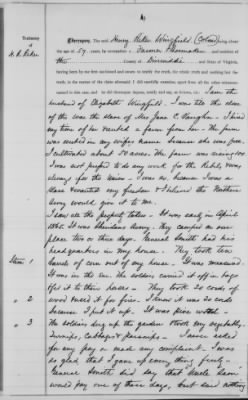 Testimony
of
H. R. Riker
Thereupon, The said Henry Riker Wingfield (Colored) being about
the age of 59 years, by occupation a Farmer Shoemaker and resident of
the County of Dinwiddie and State of Virginia,
having been by me first cautioned and sworn to testify the truth, the whole truth and nothing but the
truth, in the matter of the claim aforesaid, I did carefully examine apart from all the other witnesses
I am the
husband of Elizabeth Wingfield. I was till the close
of the war the slave of Mrs Jane C. Vaughn. I hired
my time of her & rented a farm from her. The farm
was rented in my wifes name because she was free.
I cultivated about 40 acres. The farm was
I was not forced to do any work for the Rebels, was
always for the Union. I was so because I was a
slave & wanted my freedom & I believed the Northern
Army would give it to me.
I saw all the property taken. It was early in April
1865. It was Sheridans Army. They camped on our
place two or three days. General Smith had his
headquarters in my house. They took ten
Item 1 barrels of corn out of my house. It was measured.
It was in the ear. The soldiers carried it off in bags
& fed it to their horses. They took 20 cords of
" 2 wood & used it for fires. I know it was 20 cords
because I put it up. It was pine wood.
" 3 The soldiers dug up the garden & took my vegetables
turnips, Cabbages & parsnips. I never asked
for any pay or made any complaint. I was
so glad that I gave up every thing freely.
General Smith did say that Uncle Sam
would pay one of these days, but said nothing